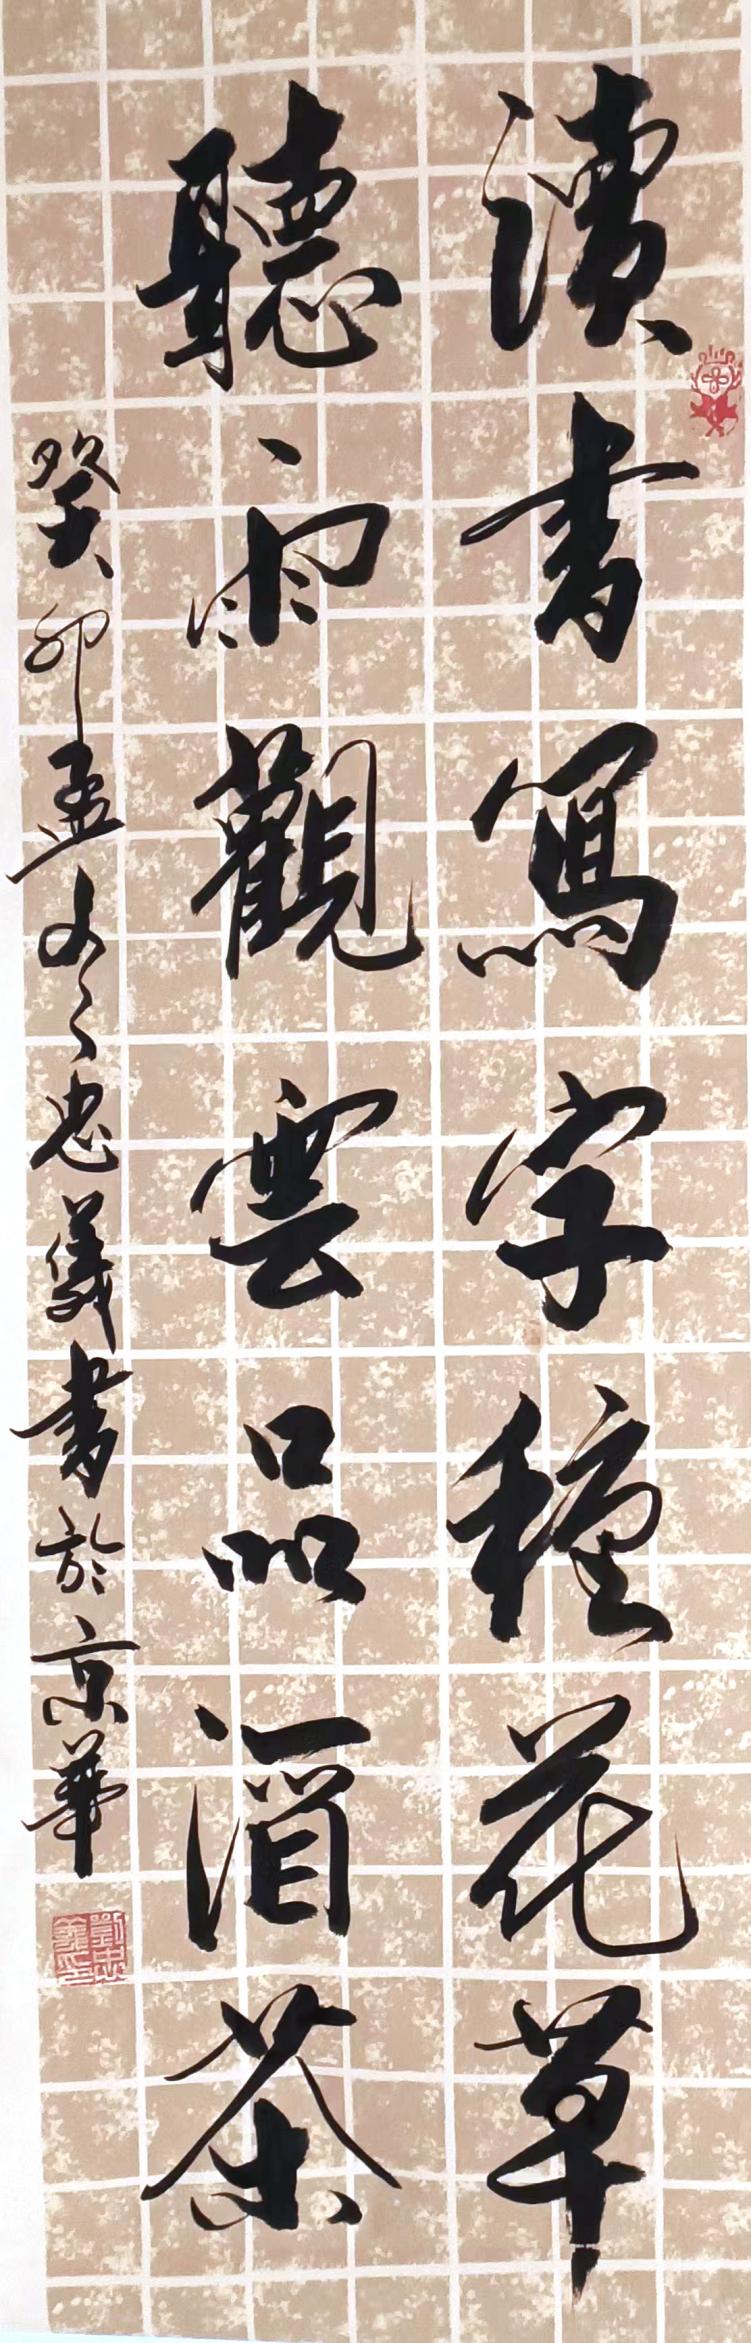 讀書寫字種花草
聽雨觀雲品酒茶
癸卯孟冬忠義書於京華
劉忠義印